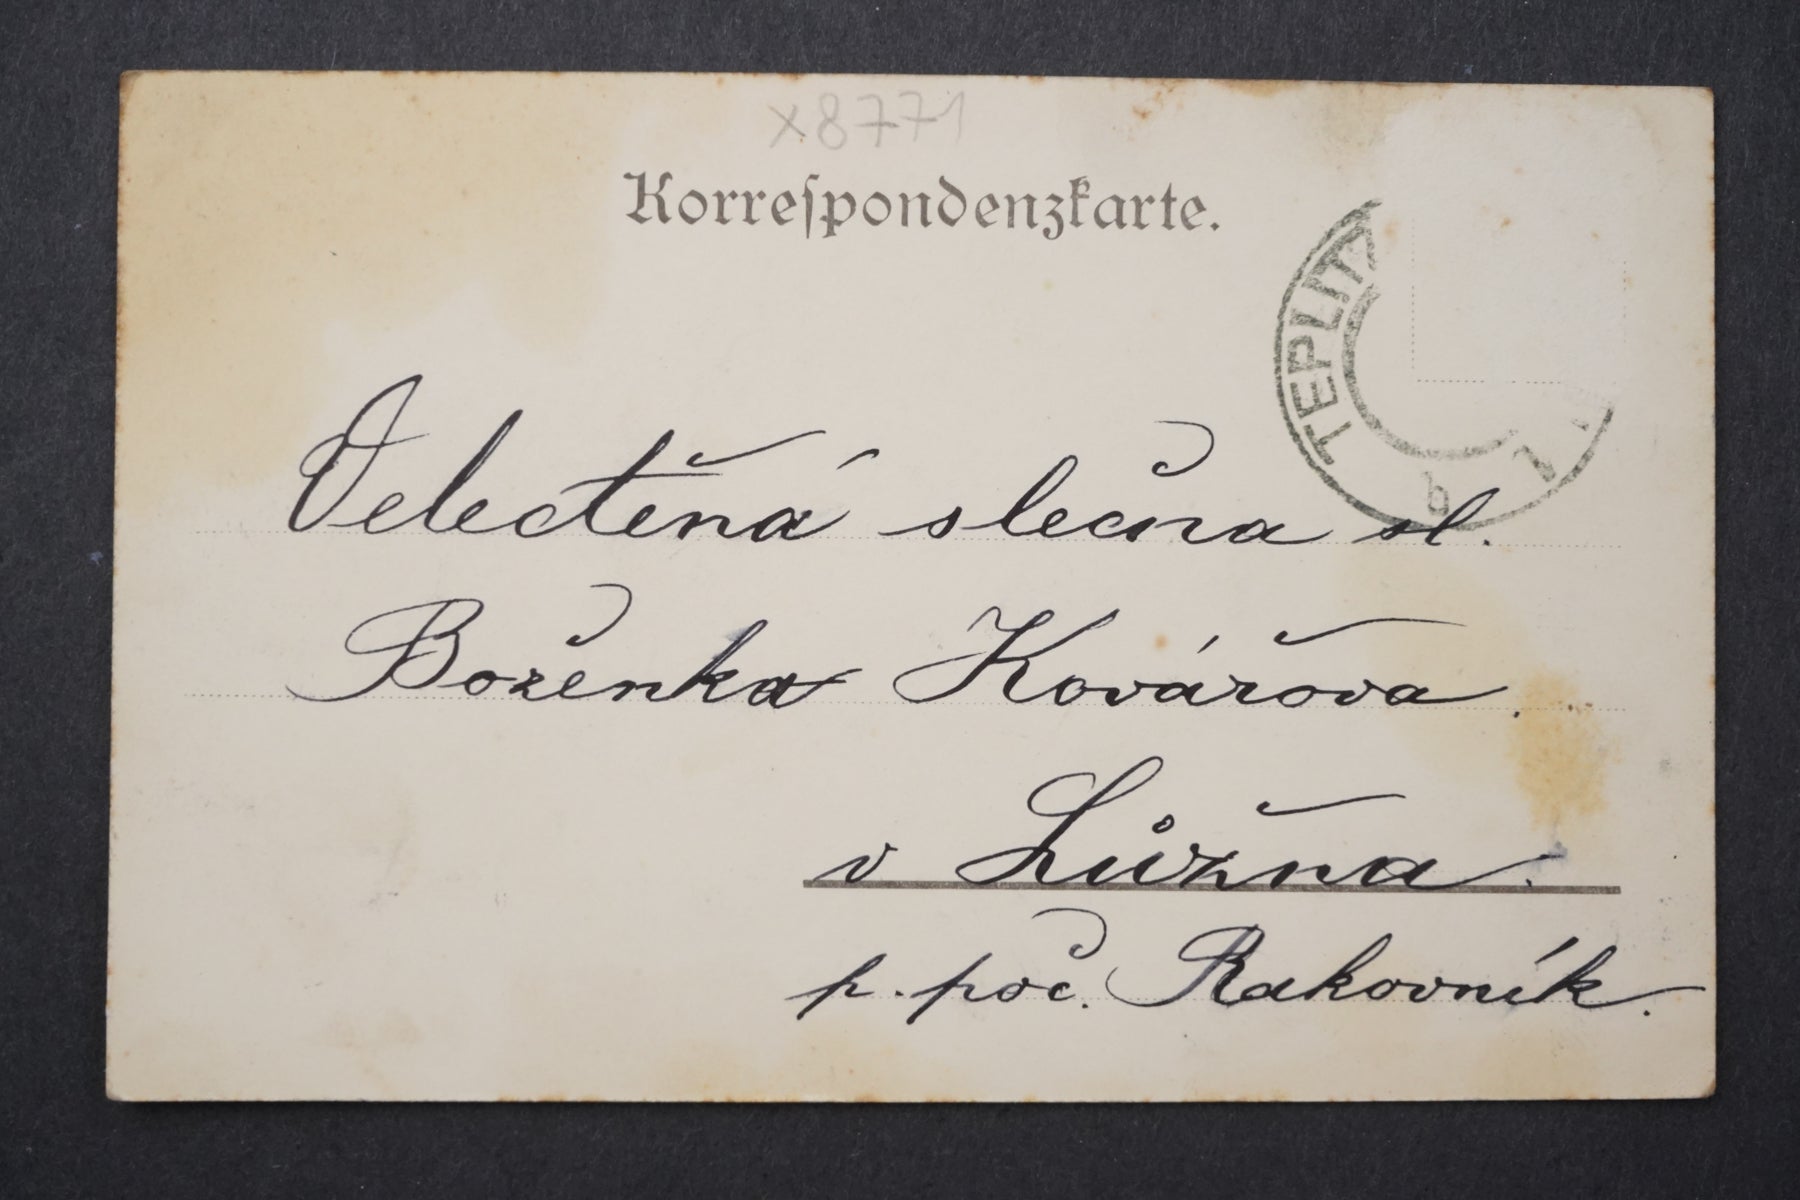 x8771
Korrespondenzkarte.
TEPLITZ
b
Velectěná slečna sl.
Boženka Kovářova.
v Lůžna.
p. poč. Rakovník.